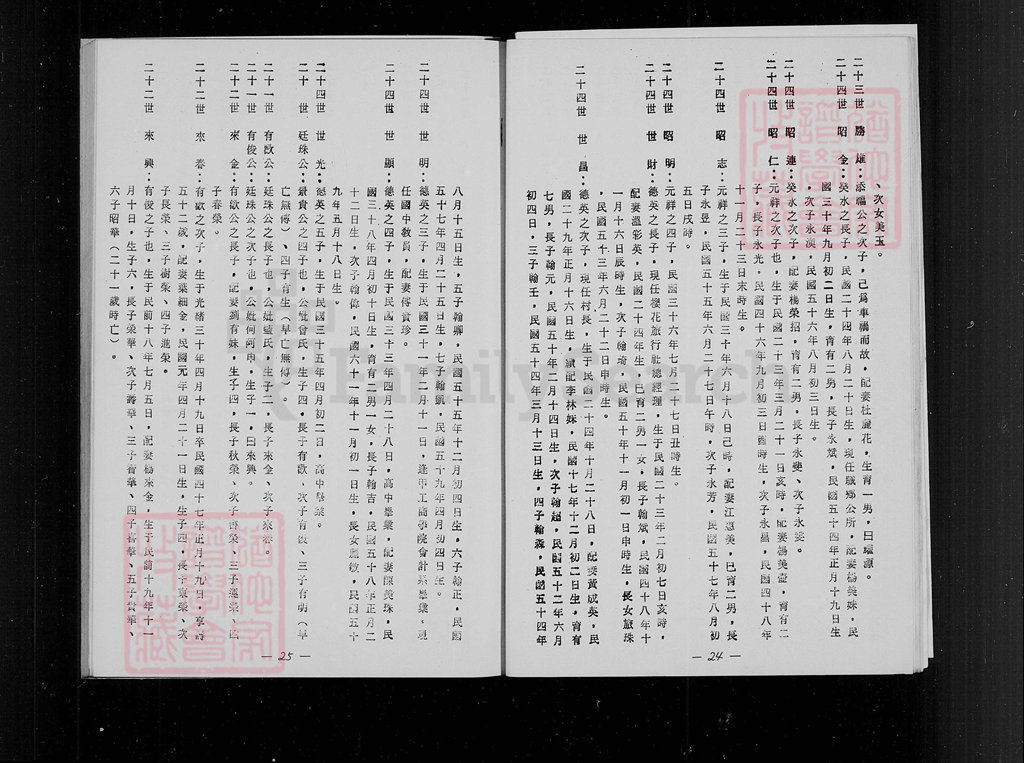 、次女美玉。
二十三世 勝 雄：添福公之次子，己為車禍而故，配妻杜麗花，生育一男，曰曜源。
二十四世 昭 金：癸水之長子，民國二十四年八月二十日生，現任職鄉公所，配妻楊美妹，民
國三十年九月初二日生，育有二男，長子永斌，民國五十四年正月十九日生
，次子永漢，民國五十六年八月初三日生。
二十四世 昭 連：癸水之次子，配妻楊榮招，育有二男，長子永、次子永。
二十四世 昭 仁：元祥之次子也，生于民國三十年六月十八日己時，配妻江惠美，已育二男，長
子，長子永光，民國四十六年九月初三日酉時生，次子永昌，民國四十八年
十一月二十三日末時生。
二十四世 昭 志：元祥之三子，生于民國二十三年三月二十一日亥時，配妻楊美壷，育有二
子永昱，民國五十五年六月二十七日午時，次子永芳，民國五十七年八月初
五日戌時。
二十四世 昭 明：元祥之四子，民國三十六年七月二十七日丑時生。
二十四世 世 財：德英之長子，現任櫻花旅行社總經理，生于民國二十三年二月初七日亥時，
配妻溫彩英，民國二十四年生，已育二男一女，長子翰斌，民國四十八年十
一月十六日辰時生，次子翰琦，民國五十年十一月初一日申時生，長女旅珠
，民國五十三年六月二十二日申時生。
二十四世 世 昌：德英之次子，現任村長，生于民國二十四年十月二十八日，配妻黃成英，民
國二十九年正月十六日生，續配李林妹，民國十七年十二月初二日生，育有
七男，長子翰元，民國五十年二月十四日生，次子翰超，民國五十二年六月
初四日，三子翰壬，民國五十四年三月十三日生，四子翰森，民國五十四年
— 24 —
八月十五日生，五子翰卿，民國五十五年十二月初四日生，六子翰正，民國
五十七年四月二十五日生，七子翰凱，民國五十九年四月初四日生。
二十四世 世 明：德英之三子，生于民國三十一年二月十一日，逢甲工商學院會計系畢業，現
任國中教員，配妻傅貴珍。
二十四世 世 顯：德英之四子，生于民國三十三年四月二十八日，高中畢業，配妻陳美珠，民
國三十八年四月初十日生，育有二男一女，長子翰吉，民國五十八年正月二
十二日生，次子翰偉，民國六十一年十一月初一日生，長女麗敏，民國五十
九年五月十八日生。
二十四世 世 光：德英之五子，生于民國三十五年四月初二日，高中畢業。
二十 世 廷珠公：景貴公之四子也，公妣曾氏，生子四，長子有歆、次子有俊、三子有朝（早
亡無傳）、四子有生（早亡無傳）。
二十一世 有歆公：廷珠公之長子也，公妣藍氏，生子二，長子來金、次子來春。
二十一世 有俊公：廷珠公之次子也，公妣何阿申，生子一，曰來興。
二十二世 來 金：有歆公之長子，配妻劉有妹，生子四，長子秋榮、次子香榮、三子運榮、四
子春榮。
二十二世 來 春：有歆之次子，生于光緒三十年四月十九日卒民國四十七年正月十九日，享壽
五十二歲，配妻葉細金，民國元年四月二十一日生，生子四，長子東榮、次
子長榮、三子樹榮、四子進榮。
二十二世 來 興：有俊之子也，生于民前十八年七月五日，配妻楊來金，生于民前十九年十一
月十日，生子六，長子榮華、次子壽華、三子香華、四子喜華、五子貴華、
六子昭華（二十一歲時亡）。
— 25 —